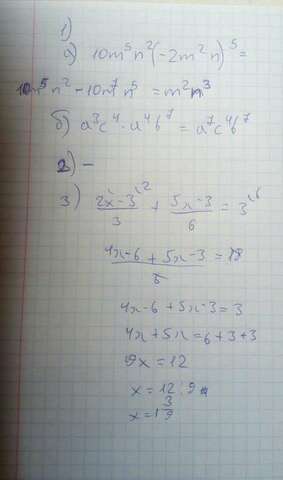 1)
а) 10m⁵n²(-2m²n)⁵ =
10m⁵n² - 10m⁷n⁵ = m²n³
б) a³c⁴ · a⁴b⁷ = a⁷c⁴b⁷
2) —
3) (2x-3)/3 \² + (5x-3)/6 = 3 \⁶
(4x-6 + 5x-3)/6 = 18
4x-6 + 5x-3 = 3
4x + 5x = 6+3+3
9x = 12
x = 12 : 9
x = 1 3/9